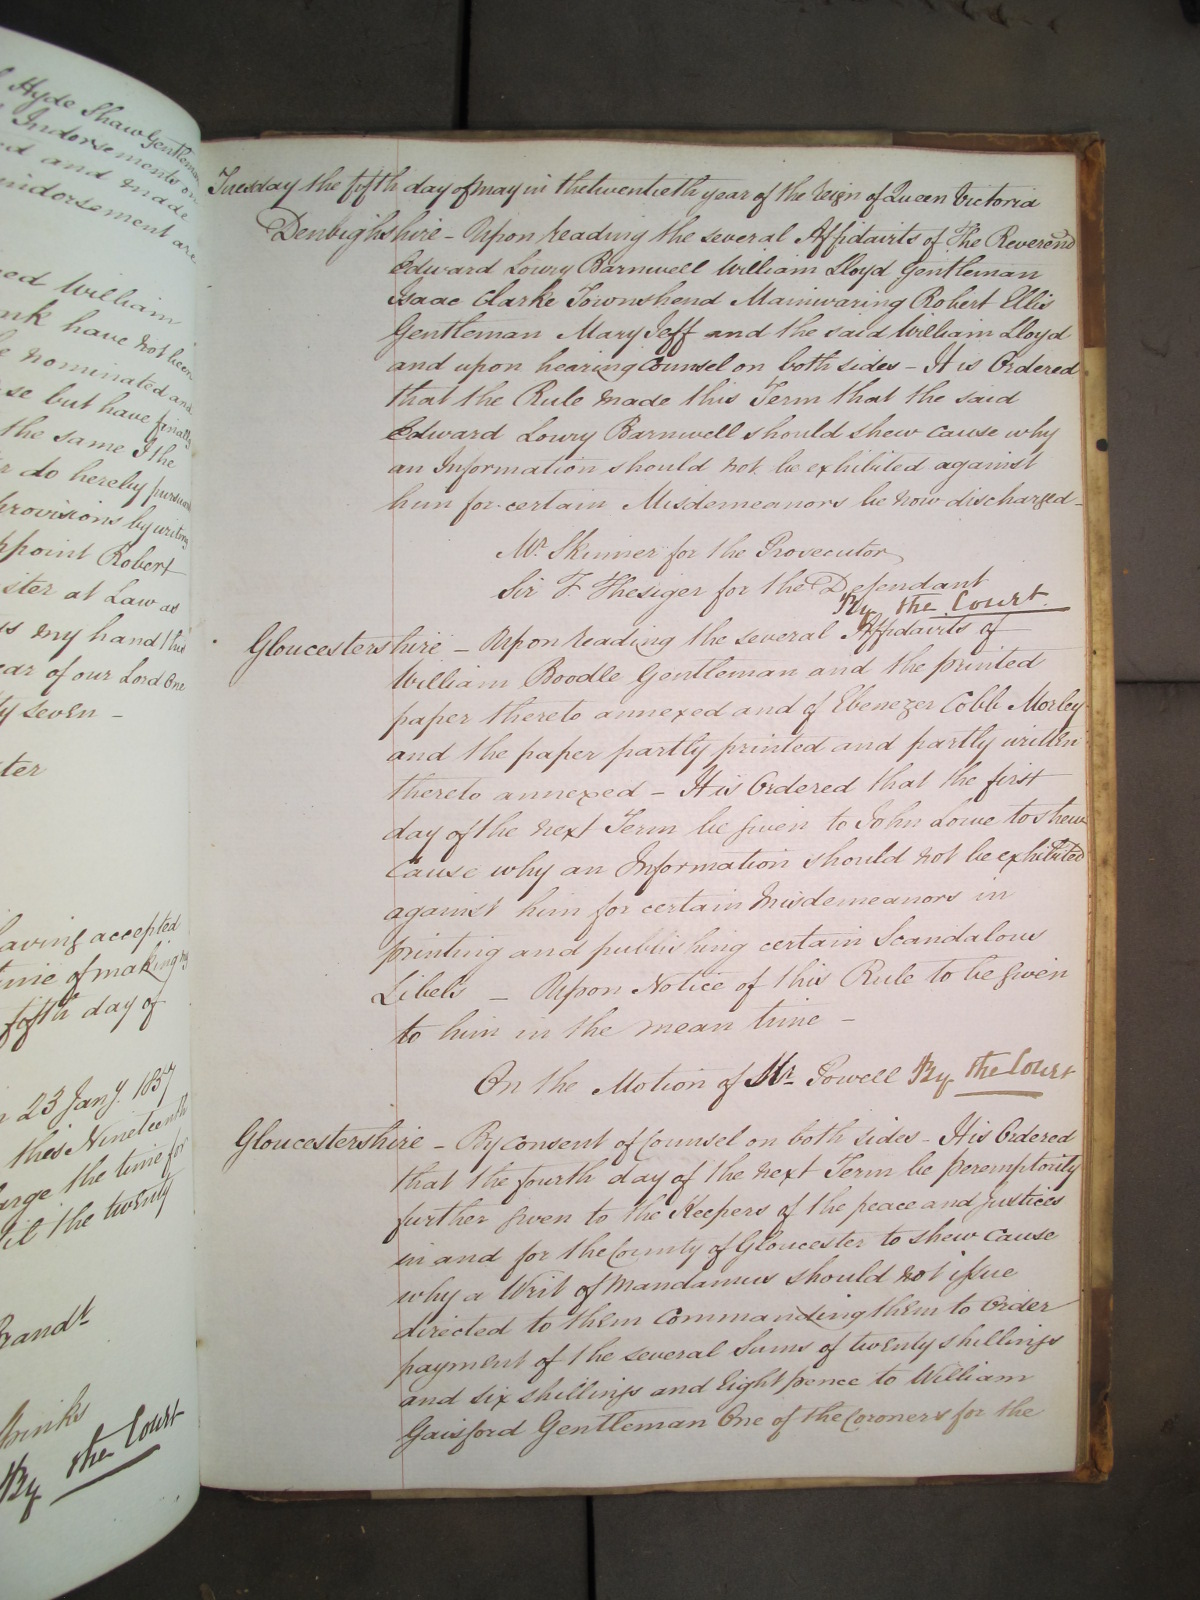 Hyde Shaw Gentleman
Indorsements on
and made
indorsement are
William
have not been
nominated and
but have finally
the same I the
do hereby pursuant
provisions by writing
appoint Robert
at Law as
my hand this
year of our Lord One
seven –
having accepted
time of making
fifth day of
23 Jany. 1857
this Nineteenth
the time for
the twenty
Brandt
By the Court
Tuesday the fifth day of May in the twentieth year of the reign of Queen Victoria
Denbighshire – Upon reading the several Affidavits of The Reverend
Edward Lowry Barnwell William Lloyd Gentleman
Isaac Clarke Townshend Mainwaring Robert Ellis
Gentleman Mary Jeff and the said William Lloyd
and upon hearing Counsel on both sides – It is Ordered
that the Rule made this Term that the said
Edward Lowry Barnwell should shew cause why
an Information should not be exhibited against
him for certain Misdemeanors be now discharged –
Mr. Skinner for the Prosecutor
Sir F. Thesiger for the Defendant
By the Court
Gloucestershire – Upon reading the several Affidavits of
William Boodle Gentleman and the printed
paper thereto annexed and of Ebenezer Cobb Morley
and the paper partly printed and partly written
thereto annexed – It is Ordered that the first
day of the next Term be given to John Lowe to shew
Cause why an Information should not be exhibited
against him for certain Misdemeanors in
printing and publishing certain Scandalous
Libels – Upon Notice of this Rule to be given
to him in the mean time –
On the Motion of Mr. Powell By the Court
Gloucestershire – By Consent of Counsel on both sides – It is Ordered
that the fourth day of the next Term be peremptorily
further given to the Keepers of the peace and Justices
in and for the County of Gloucester to shew Cause
why a Writ of Mandamus should not issue
directed to them Commanding them to Order
payment of the several Sums of twenty shillings
and six shillings and Eight pence to William
Gaisford Gentleman One of the Coroners for the